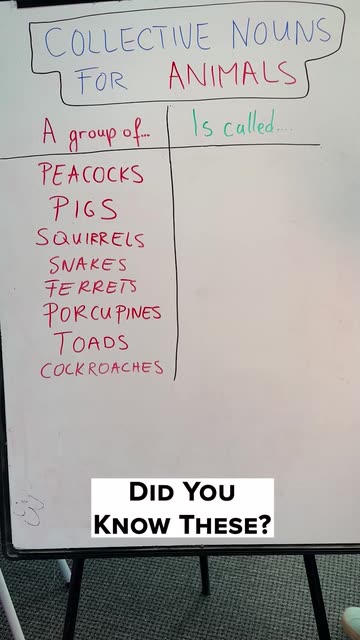 COLLECTIVE NOUNS
FOR ANIMALS
A group of... Is called....
PEACOCKS
PIGS
SQUIRRELS
SNAKES
FERRETS
PORCUPINES
TOADS
COCKROACHES
DID YOU
KNOW THESE?